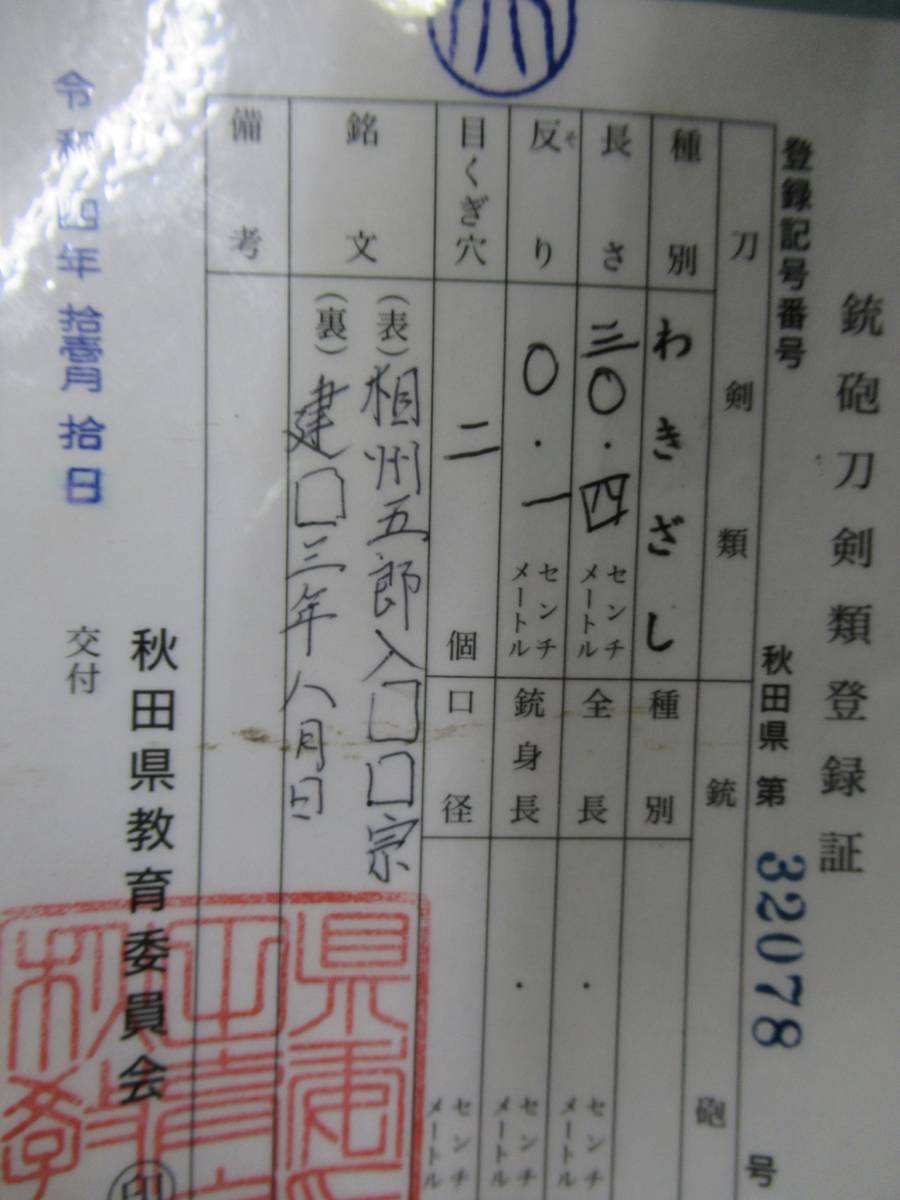 銃砲刀剣類登録証
登録記号番号 秋田県 第 32078 号
刀剣類
種別 わきざし
長さ 三〇.四 センチメートル
反り 〇.一 センチメートル
そ
目くぎ穴 二 個
銘文 (表)相州五郎入□□宗
(裏)建□三年八月日
備考
銃砲
種別
全長 . センチメートル
銃身長 . センチメートル
口径 センチメートル
令和四年拾壱月拾日 交付
秋田県教育委員会 印